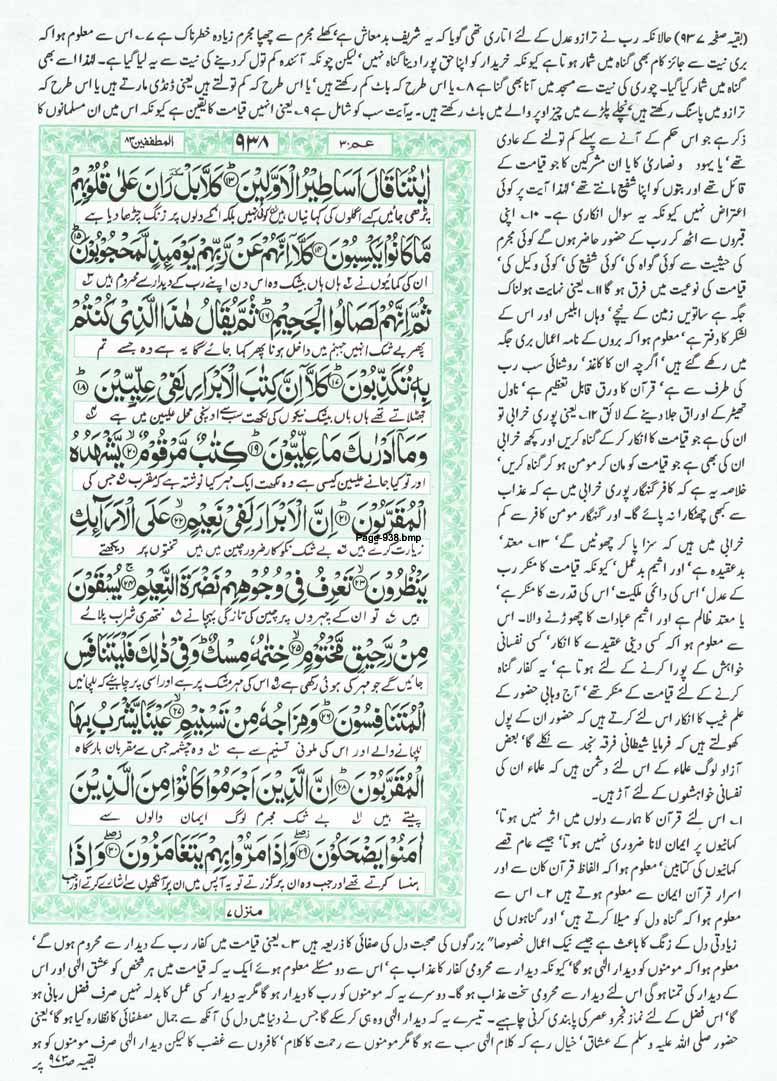 (بقیہ صفحہ ۹۳۷) حالانکہ رب نے ترازو عدل کے لئے اتاری تھی گویا کہ یہ شریف بدمعاش ہے، کھلے مجرم سے چھپا مجرم زیادہ خطرناک ہے ۷۔ اس سے معلوم ہوا کہ
بری نیت سے جائز کام بھی گناہ میں شمار ہوتا ہے کیونکہ خریدار کو اپنا حق پورا دینا گناہ نہیں، لیکن چونکہ آئندہ کم تول کر دینے کی نیت سے یہ لیا گیا ہے۔ لہٰذا اسے بھی
گناہ میں شمار کیا گیا۔ چوری کی نیت سے مسجد میں آنا بھی گناہ ہے ۸۔ یا اس طرح کہ باٹ کم رکھتے ہیں، یا اس طرح کہ کم تولتے ہیں یعنی ڈنڈی مارتے ہیں یا اس طرح کہ
ترازو میں پاسنگ رکھتے ہیں، نچلے پلڑے میں چیز اوپر والے میں باٹ رکھتے ہیں۔ یہ آیت سب کو شامل ہے ۹۔ یعنی انہیں قیامت کا یقین ہے کیونکہ اس میں ان مسلمانوں کا
ذکر ہے جو اس حکم کے آنے سے پہلے کم تولنے کے عادی
تھے، یا یہود و نصاریٰ کا یا ان مشرکین کا جو قیامت کے
قائل تھے اور بتوں کو اپنا شفیع مانتے تھے، لہٰذا آیت پر کوئی
اعتراض نہیں کیونکہ یہ سوال انکاری ہے۔ ۱۰۔ اپنی
قبروں سے اٹھ کر رب کے حضور حاضر ہوں گے کوئی مجرم
کی حیثیت سے کوئی گواہ کی، کوئی شفیع کی، کوئی وکیل کی،
قیامت کی نوعیت میں فرق ہو گا ۱۱۔ یعنی نہایت ہولناک
جگہ ہے ساتویں زمین کے نیچے، وہاں ابلیس اور اس کے
لشکر کا دفتر ہے، معلوم ہوا کہ بروں کے نامہ اعمال بری جگہ
میں رکھے گئے ہیں، اگرچہ ان کا کاغذ، روشنائی سب رب
کی طرف سے ہے، قرآن کا ورق قابل تعظیم ہے، ناول
تھیٹر کے اوراق جلا دینے کے لائق ۱۲۔ یعنی پوری خرابی تو
ان کی ہے جو قیامت کا انکار کر کے گناہ کریں اور کچھ خرابی
ان کی بھی ہے جو قیامت کو مان کر مومن ہو کر گناہ کریں،
خلاصہ یہ ہے کہ کافر گنہگار پوری خرابی میں ہے کہ عذاب
سے کبھی چھٹکارا نہ پائے گا۔ اور گنہگار مومن کافر سے کم
خرابی میں ہیں کہ سزا پا کر چھوٹیں گے، ۱۳۔ معتد،
بدعقیدہ ہے، اور اثیم بدعمل، کیونکہ قیامت کا منکر رب
کے عدل، اس کی دائمی ملکیت، اس کی قدرت کا منکر ہے،
یا معتد ظالم ہے اور اثیم عبادات کا چھوڑنے والا۔ اس
سے معلوم ہوا کہ کسی دینی عقیدے کا انکار، کسی نفسانی
خواہش کے پورا کرنے کے لئے ہوتا ہے، یہ کفار گناہ
کرنے کے لئے قیامت کے منکر تھے، آج وہابی حضور کے
علم غیب کا انکار اس لئے کرتے ہیں کہ حضور ان کے پول
کھولتے ہیں کہ فرمایا شیطانی فرقہ نجد سے نکلے گا، بعض
آزاد لوگ علماء کے اس لئے دشمن ہیں کہ علماء ان کی
نفسانی خواہشوں کے لئے آڑ ہیں۔
۱۔ اس لئے قرآن کا ہمارے دلوں میں اثر نہیں ہوتا،
کہانیوں پر ایمان لانا ضروری نہیں ہوتا، جیسے عام قصے
کہانیوں کی کتابیں، معلوم ہوا کہ الفاظ قرآن کان سے اور
اسرار قرآن ایمان سے معلوم ہوتے ہیں ۲۔ اس سے
معلوم ہوا کہ گناہ دل کو میلا کرتے ہیں، اور گناہوں کی
عم ۳۰ ۹۳۸ المطففین ۸۳
اٰیٰتُنَا قَالَ اَسَاطِیْرُ الْاَوَّلِیْنَ ﴿۱۳﴾ کَلَّا بَلْ رَانَ عَلٰی قُلُوْبِهِمْ
پڑھی جائیں کہے اگلوں کی کہانیاں ہیں کوئی نہیں بلکہ انکے دلوں پر زنگ چڑھا دیا ہے
مَّا کَانُوْا یَکْسِبُوْنَ ﴿۱۴﴾ کَلَّاۤ اِنَّهُمْ عَنْ رَّبِّهِمْ یَوْمَىِٕذٍ لَّمَحْجُوْبُوْنَ ﴿۱۵﴾
ان کی کمائیوں نے ہاں ہاں بیشک وہ اس دن اپنے رب کے دیدار سے محروم ہیں
ثُمَّ اِنَّهُمْ لَصَالُوا الْجَحِیْمِ ﴿۱۶﴾ ثُمَّ یُقَالُ هٰذَا الَّذِیْ کُنْتُمْ
پھر بے شک انہیں جہنم میں داخل ہونا پھر کہا جائے گا یہ ہے وہ جسے تم
بِهٖ تُکَذِّبُوْنَ ﴿۱۷﴾ کَلَّاۤ اِنَّ کِتٰبَ الْاَبْرَارِ لَفِیْ عِلِّیِّیْنَ ﴿۱۸﴾
جھٹلاتے تھے ہاں ہاں بیشک نیکوں کی لکھت سب سے اونچی محل علیین میں ہے
وَمَاۤ اَدْرٰىکَ مَا عِلِّیُّوْنَ ﴿۱۹﴾ کِتٰبٌ مَّرْقُوْمٌ ﴿۲۰﴾ یَّشْهَدُهُ
اور تو کیا جانے علیین کیسی ہے وہ لکھت ایک مہر کیا نوشتہ ہے کہ مقرب جس کی
الْمُقَرَّبُوْنَ ﴿۲۱﴾ اِنَّ الْاَبْرَارَ لَفِیْ نَعِیْمٍ ﴿۲۲﴾ عَلَی الْاَرَآىِٕکِ
Page-938.bmp
زیارت کرتے ہیں بے شک نکوکار ضرور چین میں ہیں تختوں پر دیکھتے
یَنْظُرُوْنَ ﴿۲۳﴾ تَعْرِفُ فِیْ وُجُوْهِهِمْ نَضْرَةَ النَّعِیْمِ ﴿۲۴﴾ یُسْقَوْنَ
ہیں تو ان کے چہروں پر چین کی تازگی پہچانے نتھری شراب پلائے
مِنْ رَّحِیْقٍ مَّخْتُوْمٍ ﴿۲۵﴾ خِتٰمُهٗ مِسْکٌ وَفِیْ ذٰلِکَ فَلْیَتَنَافَسِ
جائیں گے جو مہر کی ہوئی رکھی ہے اس کی مہر مشک پر ہے اور اسی پر چاہیئے کہ للچائیں
الْمُتَنَافِسُوْنَ ﴿۲۶﴾ وَمِزَاجُهٗ مِنْ تَسْنِیْمٍ ﴿۲۷﴾ عَیْنًا یَّشْرَبُ بِهَا
للچانے والے اور اس کی ملونی تسنیم سے ہے وہ چشمہ جس سے مقربان بارگاہ
الْمُقَرَّبُوْنَ ﴿۲۸﴾ اِنَّ الَّذِیْنَ اَجْرَمُوْا کَانُوْا مِنَ الَّذِیْنَ
پیتے ہیں بے شک مجرم لوگ ایمان والوں سے
اٰمَنُوْا یَضْحَکُوْنَ ﴿۲۹﴾ وَاِذَا مَرُّوْا بِهِمْ یَتَغَامَزُوْنَ ﴿۳۰﴾ وَاِذَا
ہنسا کرتے تھے اور جب وہ ان پر گزرتے تو یہ آپس میں ان پر آنکھوں سے اشارے کرتے اور جب
منزل ۷
زیادتی دل کے زنگ کا باعث ہے جیسے نیک اعمال خصوصاً بزرگوں کی صحبت دل کی صفائی کا ذریعہ ہیں ۳۔ یعنی قیامت میں کفار رب کے دیدار سے محروم ہوں گے،
معلوم ہوا کہ مومنوں کو دیدار الٰہی ہو گا، کیونکہ دیدار سے محرومی کفار کا عذاب ہے، اس سے دو مسئلے معلوم ہوئے ایک یہ کہ قیامت میں ہر شخص کو عشق الٰہی اور اس
کے دیدار کی تمنا ہو گی اس لئے دیدار سے محرومی سخت عذاب ہو گا۔ دوسرے یہ کہ مومنوں کو رب کا دیدار ہو گا مگر یہ دیدار کسی عمل کا بدلہ نہیں صرف فضل ربانی ہو
گا، اس فضل کے لئے نماز فجر و عصر کی پابندی کرنی چاہیے۔ تیسرے یہ کہ دیدار الٰہی وہ ہی کر سکے گا جس نے دنیا میں دل کی آنکھ سے جمال مصطفائی کا نظارہ کیا ہو گا، یعنی
حضور صلی اللہ علیہ وسلم کے عشاق، خیال رہے کہ کلام الٰہی سب سے ہو گا مگر مومنوں سے رحمت کا کلام، کافروں سے غضب کا لیکن دیدار الٰہی صرف مومنوں کو ہو
بقیہ صـ ۹۷۳ پر